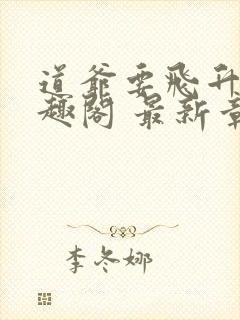 道爷要飞升
趣阁 最新章
李冬娜